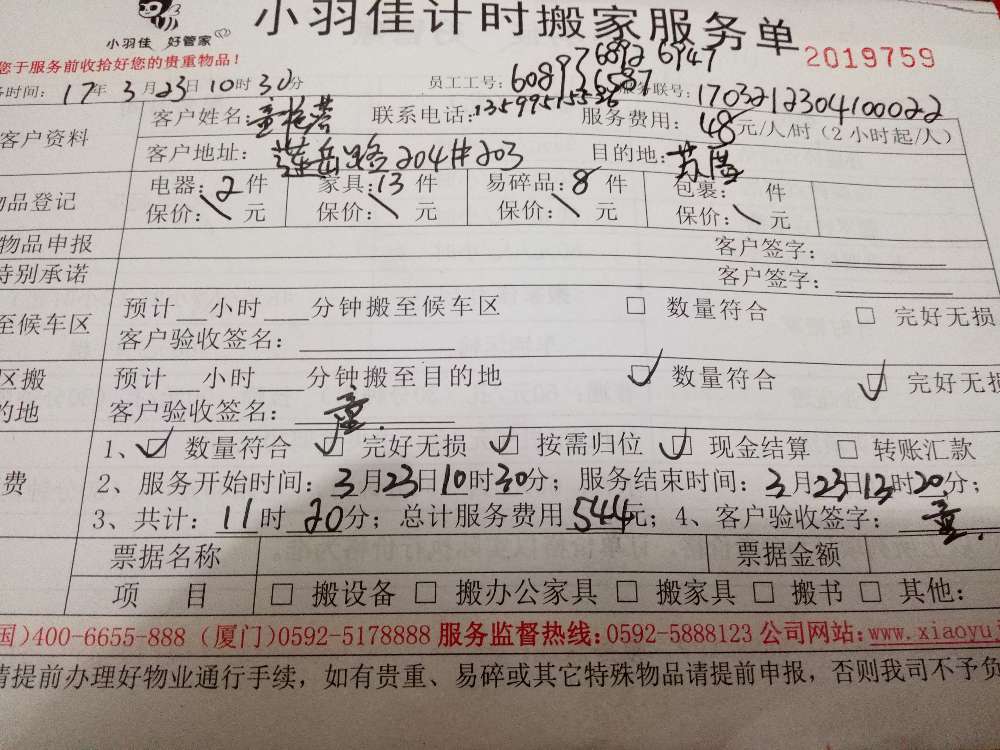 小羽佳计时搬家服务单
小羽佳 好管家
2019759
您于服务前收拾好您的贵重物品!
务时间: 17年 3月23日10时30分 员工工号: 608976892 6947 6587 服务联号: 1703212304100022
客户资料 客户姓名: 童艳芬 联系电话: 13599515536 服务费用: 48元/人/时(2小时起/人)
客户地址: 莲岳路204#203 目的地:
物品登记 电器: 2件 家具: 13件 易碎品: 8件 包裹: 件
保价: \元 保价: \元 保价: \元 保价: \元
物品申报 客户签字:
特别承诺 客户签字:
至候车区 预计___小时___分钟搬至候车区 □ 数量符合 □ 完好无损
客户验收签名:
区搬 预计___小时___分钟搬至目的地 ☑ 数量符合 ☑ 完好无损
的地 客户验收签名: 童
费 1、☑ 数量符合 ☑ 完好无损 ☑ 按需归位 ☑ 现金结算 □ 转账汇款
2、服务开始时间: 3月23日10时30分; 服务结束时间: 3月23日13时20分;
3、共计: 11时20分; 总计服务费用544元; 4、客户验收签字: 童
票据名称 票据金额
项 目 □ 搬设备 □ 搬办公家具 □ 搬家具 □ 搬书 □ 其他:
国)400-6655-888 (厦门)0592-5178888 服务监督热线:0592-5888123 公司网站:www.xiaoyu
请提前办理好物业通行手续，如有贵重、易碎或其它特殊物品请提前申报，否则我司不予负